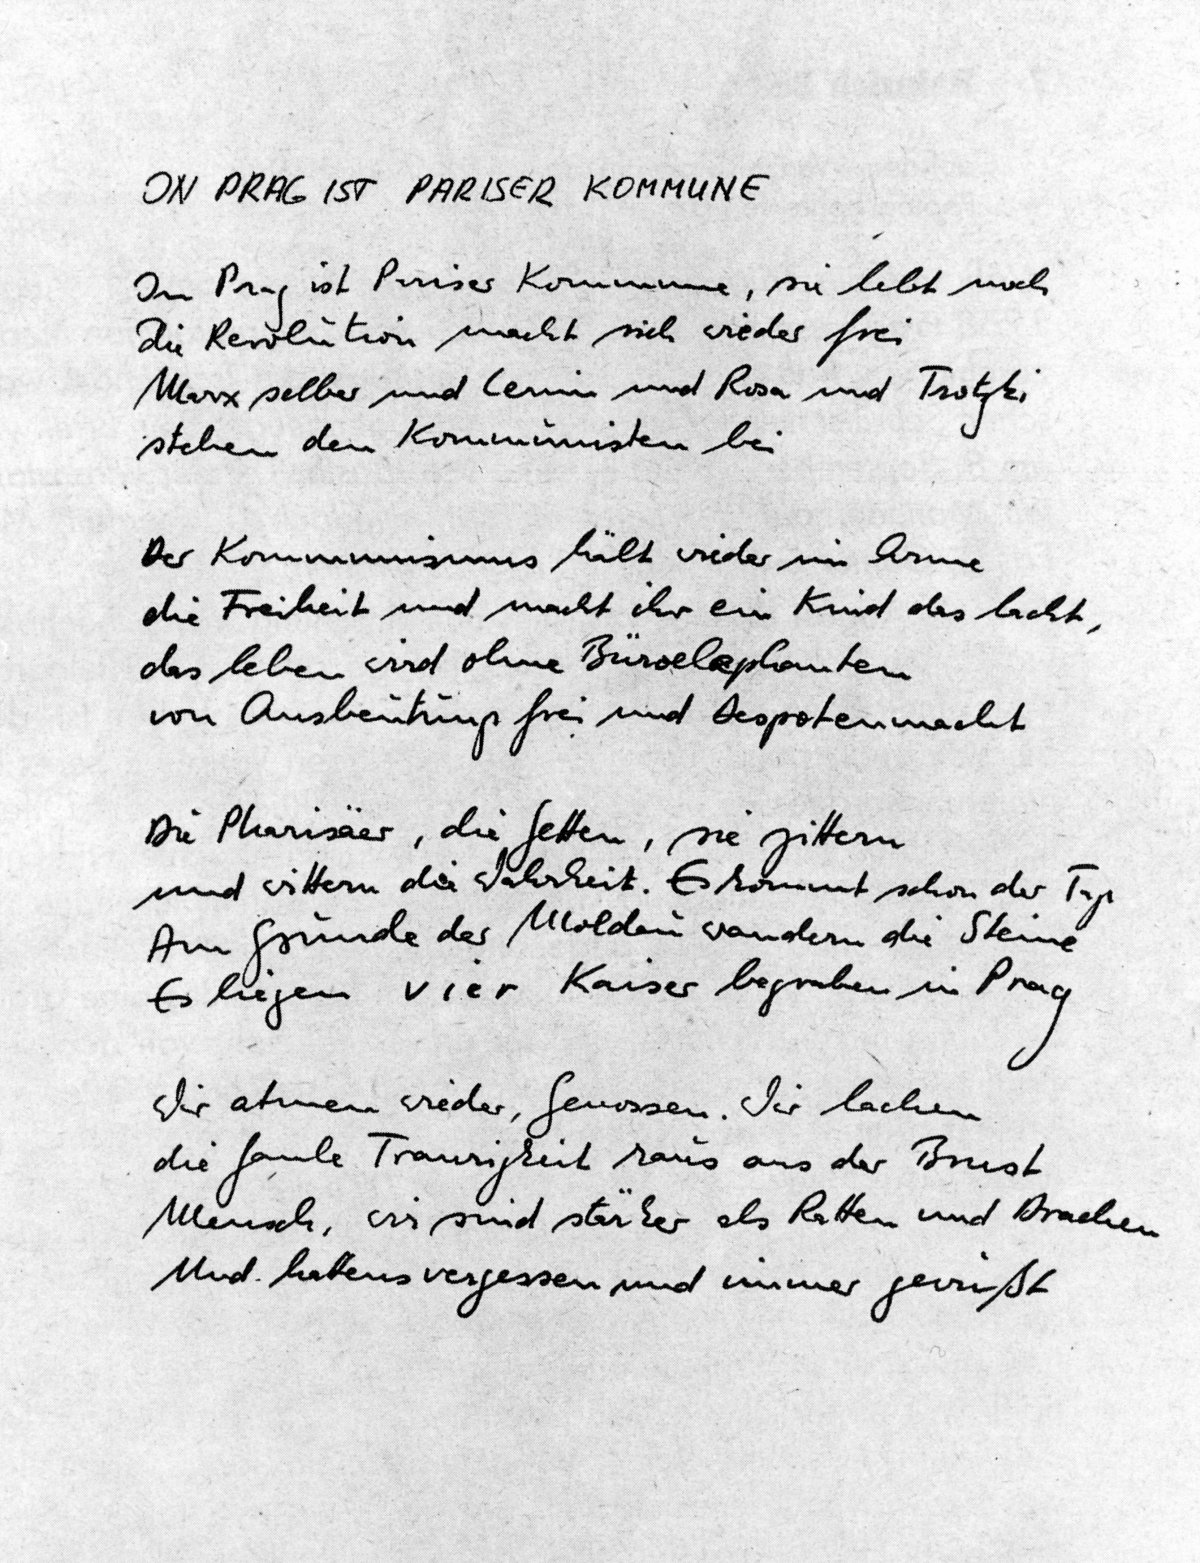 IN PRAG IST PARISER KOMMUNE
In Prag ist Pariser Kommune, sie lebt noch
Die Revolution macht sich wieder frei
Marx selber und Lenin und Rosa und Trotzki
stehen den Kommunisten bei
Der Kommunismus hält wieder im Arme
die Freiheit und macht ihr ein Kind das lacht,
das Leben wird ohne Büroelephanten
von Ausbeutung frei und Despotenmacht
Die Pharisäer, die fetten, sie zittern
und wittern die Wahrheit. Es kommt schon der Tag
Am Grunde der Moldau wandern die Steine
Es liegen vier Kaiser begraben in Prag
Wir atmen wieder, Genossen. Wir lachen
die faule Traurigkeit raus aus der Brust
Mensch, wir sind stärker als Ratten und Drachen
Und hattens vergessen und immer gewußt